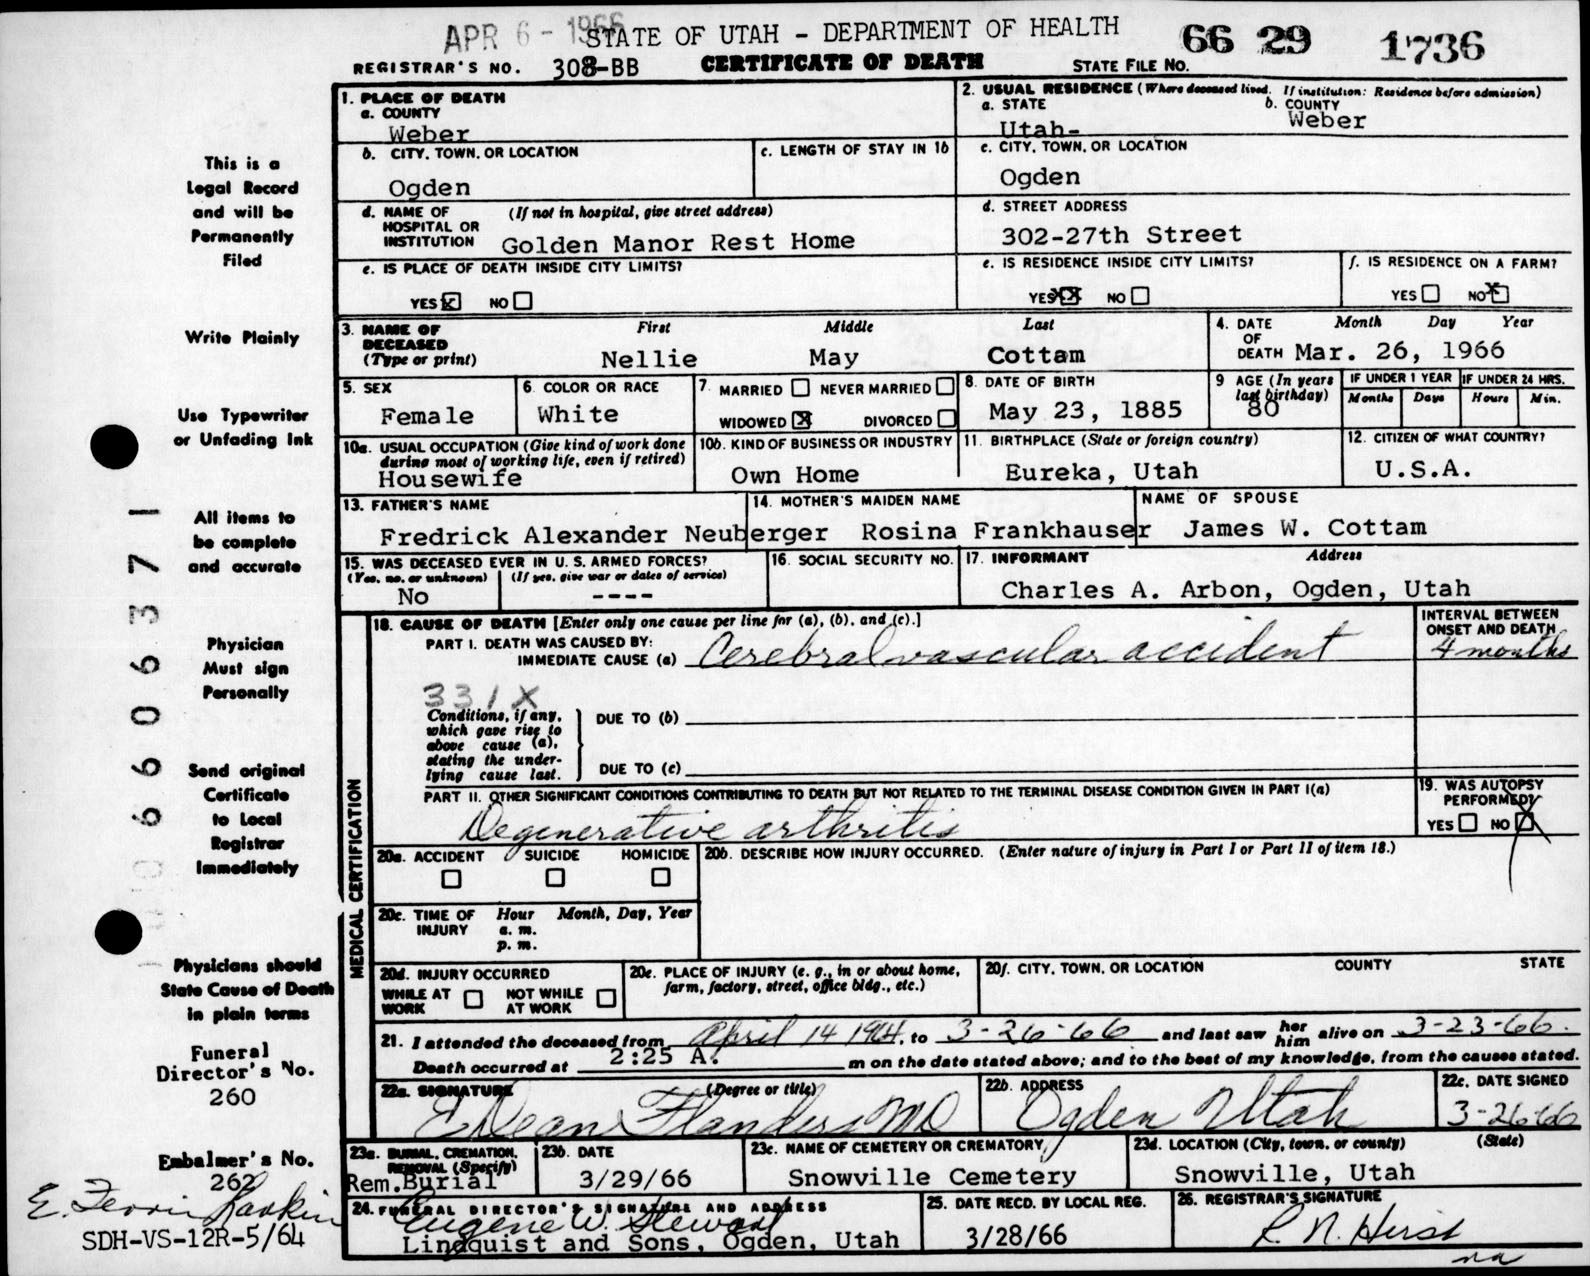 APR 6 - 1966
STATE OF UTAH - DEPARTMENT OF HEALTH
66 29 1736
REGISTRAR'S NO. 308-BB CERTIFICATE OF DEATH STATE FILE NO.
1. PLACE OF DEATH
a. COUNTY
Weber
2. USUAL RESIDENCE (Where deceased lived. If institution: Residence before admission)
a. STATE b. COUNTY
Utah- Weber
b. CITY, TOWN, OR LOCATION c. LENGTH OF STAY IN 1b
Ogden
c. CITY, TOWN, OR LOCATION
Ogden
d. NAME OF HOSPITAL OR INSTITUTION (If not in hospital, give street address)
Golden Manor Rest Home
d. STREET ADDRESS
302-27th Street
e. IS PLACE OF DEATH INSIDE CITY LIMITS?
YES NO
e. IS RESIDENCE INSIDE CITY LIMITS?
YES NO
f. IS RESIDENCE ON A FARM?
YES NO
3. NAME OF DECEASED (Type or print) First Middle Last
Nellie May Cottam
4. DATE OF DEATH Month Day Year
Mar. 26, 1966
5. SEX
Female
6. COLOR OR RACE
White
7. MARRIED NEVER MARRIED
WIDOWED DIVORCED
8. DATE OF BIRTH
May 23, 1885
9 AGE (In years last birthday)
80
IF UNDER 1 YEAR IF UNDER 24 HRS.
Months Days Hours Min.
10a. USUAL OCCUPATION (Give kind of work done during most of working life, even if retired)
Housewife
10b. KIND OF BUSINESS OR INDUSTRY
Own Home
11. BIRTHPLACE (State or foreign country)
Eureka, Utah
12. CITIZEN OF WHAT COUNTRY?
U.S.A.
13. FATHER'S NAME
Fredrick Alexander Neuberger
14. MOTHER'S MAIDEN NAME
Rosina Frankhauser
NAME OF SPOUSE
James W. Cottam
15. WAS DECEASED EVER IN U. S. ARMED FORCES?
(Yes, no, or unknown) (If yes, give war or dates of service)
No ----
16. SOCIAL SECURITY NO.
17. INFORMANT Address
Charles A. Arbon, Ogden, Utah
MEDICAL CERTIFICATION
18. CAUSE OF DEATH [Enter only one cause per line for (a), (b), and (c).]
INTERVAL BETWEEN ONSET AND DEATH
PART I. DEATH WAS CAUSED BY:
IMMEDIATE CAUSE (a) Cerebral vascular accident 4 months
331X
Conditions, if any, which gave rise to above cause (a), stating the underlying cause last.
DUE TO (b)
DUE TO (c)
PART II. OTHER SIGNIFICANT CONDITIONS CONTRIBUTING TO DEATH BUT NOT RELATED TO THE TERMINAL DISEASE CONDITION GIVEN IN PART I(a)
Degenerative arthritis
19. WAS AUTOPSY PERFORMED?
YES NO
20a. ACCIDENT SUICIDE HOMICIDE
20b. DESCRIBE HOW INJURY OCCURRED. (Enter nature of injury in Part I or Part II of item 18.)
20c. TIME OF INJURY Hour Month, Day, Year
a. m.
p. m.
20d. INJURY OCCURRED
WHILE AT WORK NOT WHILE AT WORK
20e. PLACE OF INJURY (e. g., in or about home, farm, factory, street, office bldg., etc.)
20f. CITY, TOWN, OR LOCATION COUNTY STATE
21. I attended the deceased from April 14 1964, to 3-26-66 and last saw her him alive on 3-23-66.
Death occurred at 2:25 A. m on the date stated above; and to the best of my knowledge, from the causes stated.
22a. SIGNATURE (Degree or title)
E Dean Flanders MD
22b. ADDRESS
Ogden Utah
22c. DATE SIGNED
3-26-66
23a. BURIAL, CREMATION, REMOVAL (Specify)
Rem. Burial
23b. DATE
3/29/66
23c. NAME OF CEMETERY OR CREMATORY
Snowville Cemetery
23d. LOCATION (City, town, or county) (State)
Snowville, Utah
24. FUNERAL DIRECTOR'S SIGNATURE AND ADDRESS
Eugene W. Stewart
Lindquist and Sons, Ogden, Utah
25. DATE RECD. BY LOCAL REG.
3/28/66
26. REGISTRAR'S SIGNATURE
R. N. Hirst
na
This is a
Legal Record
and will be
Permanently
Filed
Write Plainly
Use Typewriter
or Unfading Ink
All items to
be complete
and accurate
Physician
Must sign
Personally
Send original
Certificate
to Local
Registrar
Immediately
Physicians should
State Cause of Death
in plain terms
Funeral
Director's No.
260
Embalmer's No.
262
E. Ferrin Larkin
SDH-VS-12R-5/64
6606371